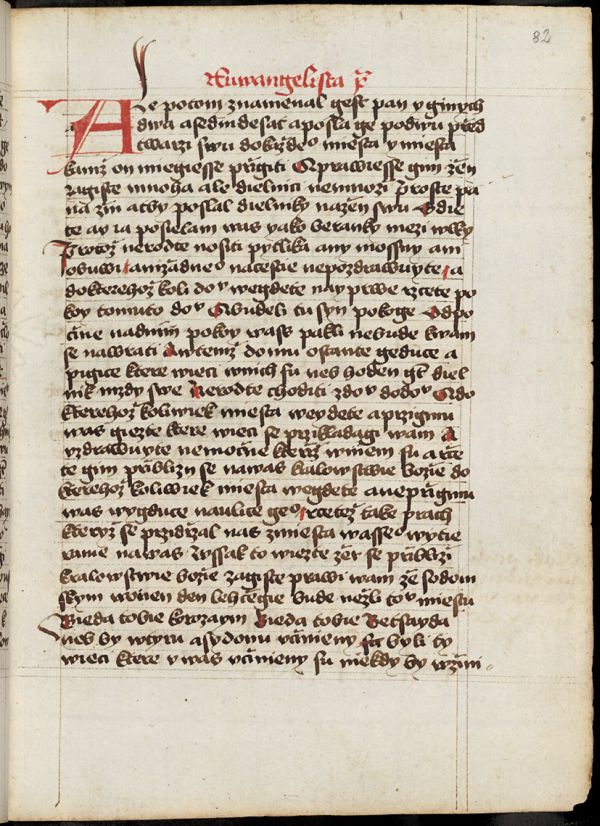 82
Euwangelista X
Ale potom znamenal gest pan y ginych
dwa a sedmdesat a posla ge po dwu przed
twarzi swu do každeo miesta y miesta
kamž on miegiesse přigiti Oprawiesse gim žen
zagiste mnoha ale dielnici nemnozi Proste pa
na žni at by poslal dielniky na žen swu Gdie
te ay ia posielam was yako beranky mezi wlky
Protož nerodte nositi pytlika any mossny ani
obuwi a nižadneo na cestie nepozdrawuyte a
do kterehož koli doᵒ wegdete nayprwe rzcete po
koy tomuto doᵒ A budeli tu syn pokoge Odpo
čine nad nim pokoy wass pakli nebude k wam
se nawrati A w temž domu ostante geduce a
pigice ktere wieci v nich su neb hoden gt diel
nik mzdy swe Nerodte choditi z doᵒ do doᵒ A do
kterehož koliwiek miesta weydete a przigmu
was giezte ktere wieci se przikladagi wam A
vzdrawuyte nemocne kteřiž w niem su a rce
te gim přibližn se na was kralowstwie božie do
kterehož koliwiek miesta wegdete a nepřigmu
was wygduce na ulice geᵒ rcetež take prach
kteryž se přidržal nas z miesta wasseᵒ wytie
rame na was Wssak to wiezte žet se přibliži
kralowstwie božie zagiste prawi wam že sodom
skym w onen den lehčegie bude nežli toᵘ miestu
Bieda tobie korozaym Bieda tobie Betsayda
neb by w tyru a sydonu včinieny su byli ty
wieci ktere v was včinieny su niekdy by w žini